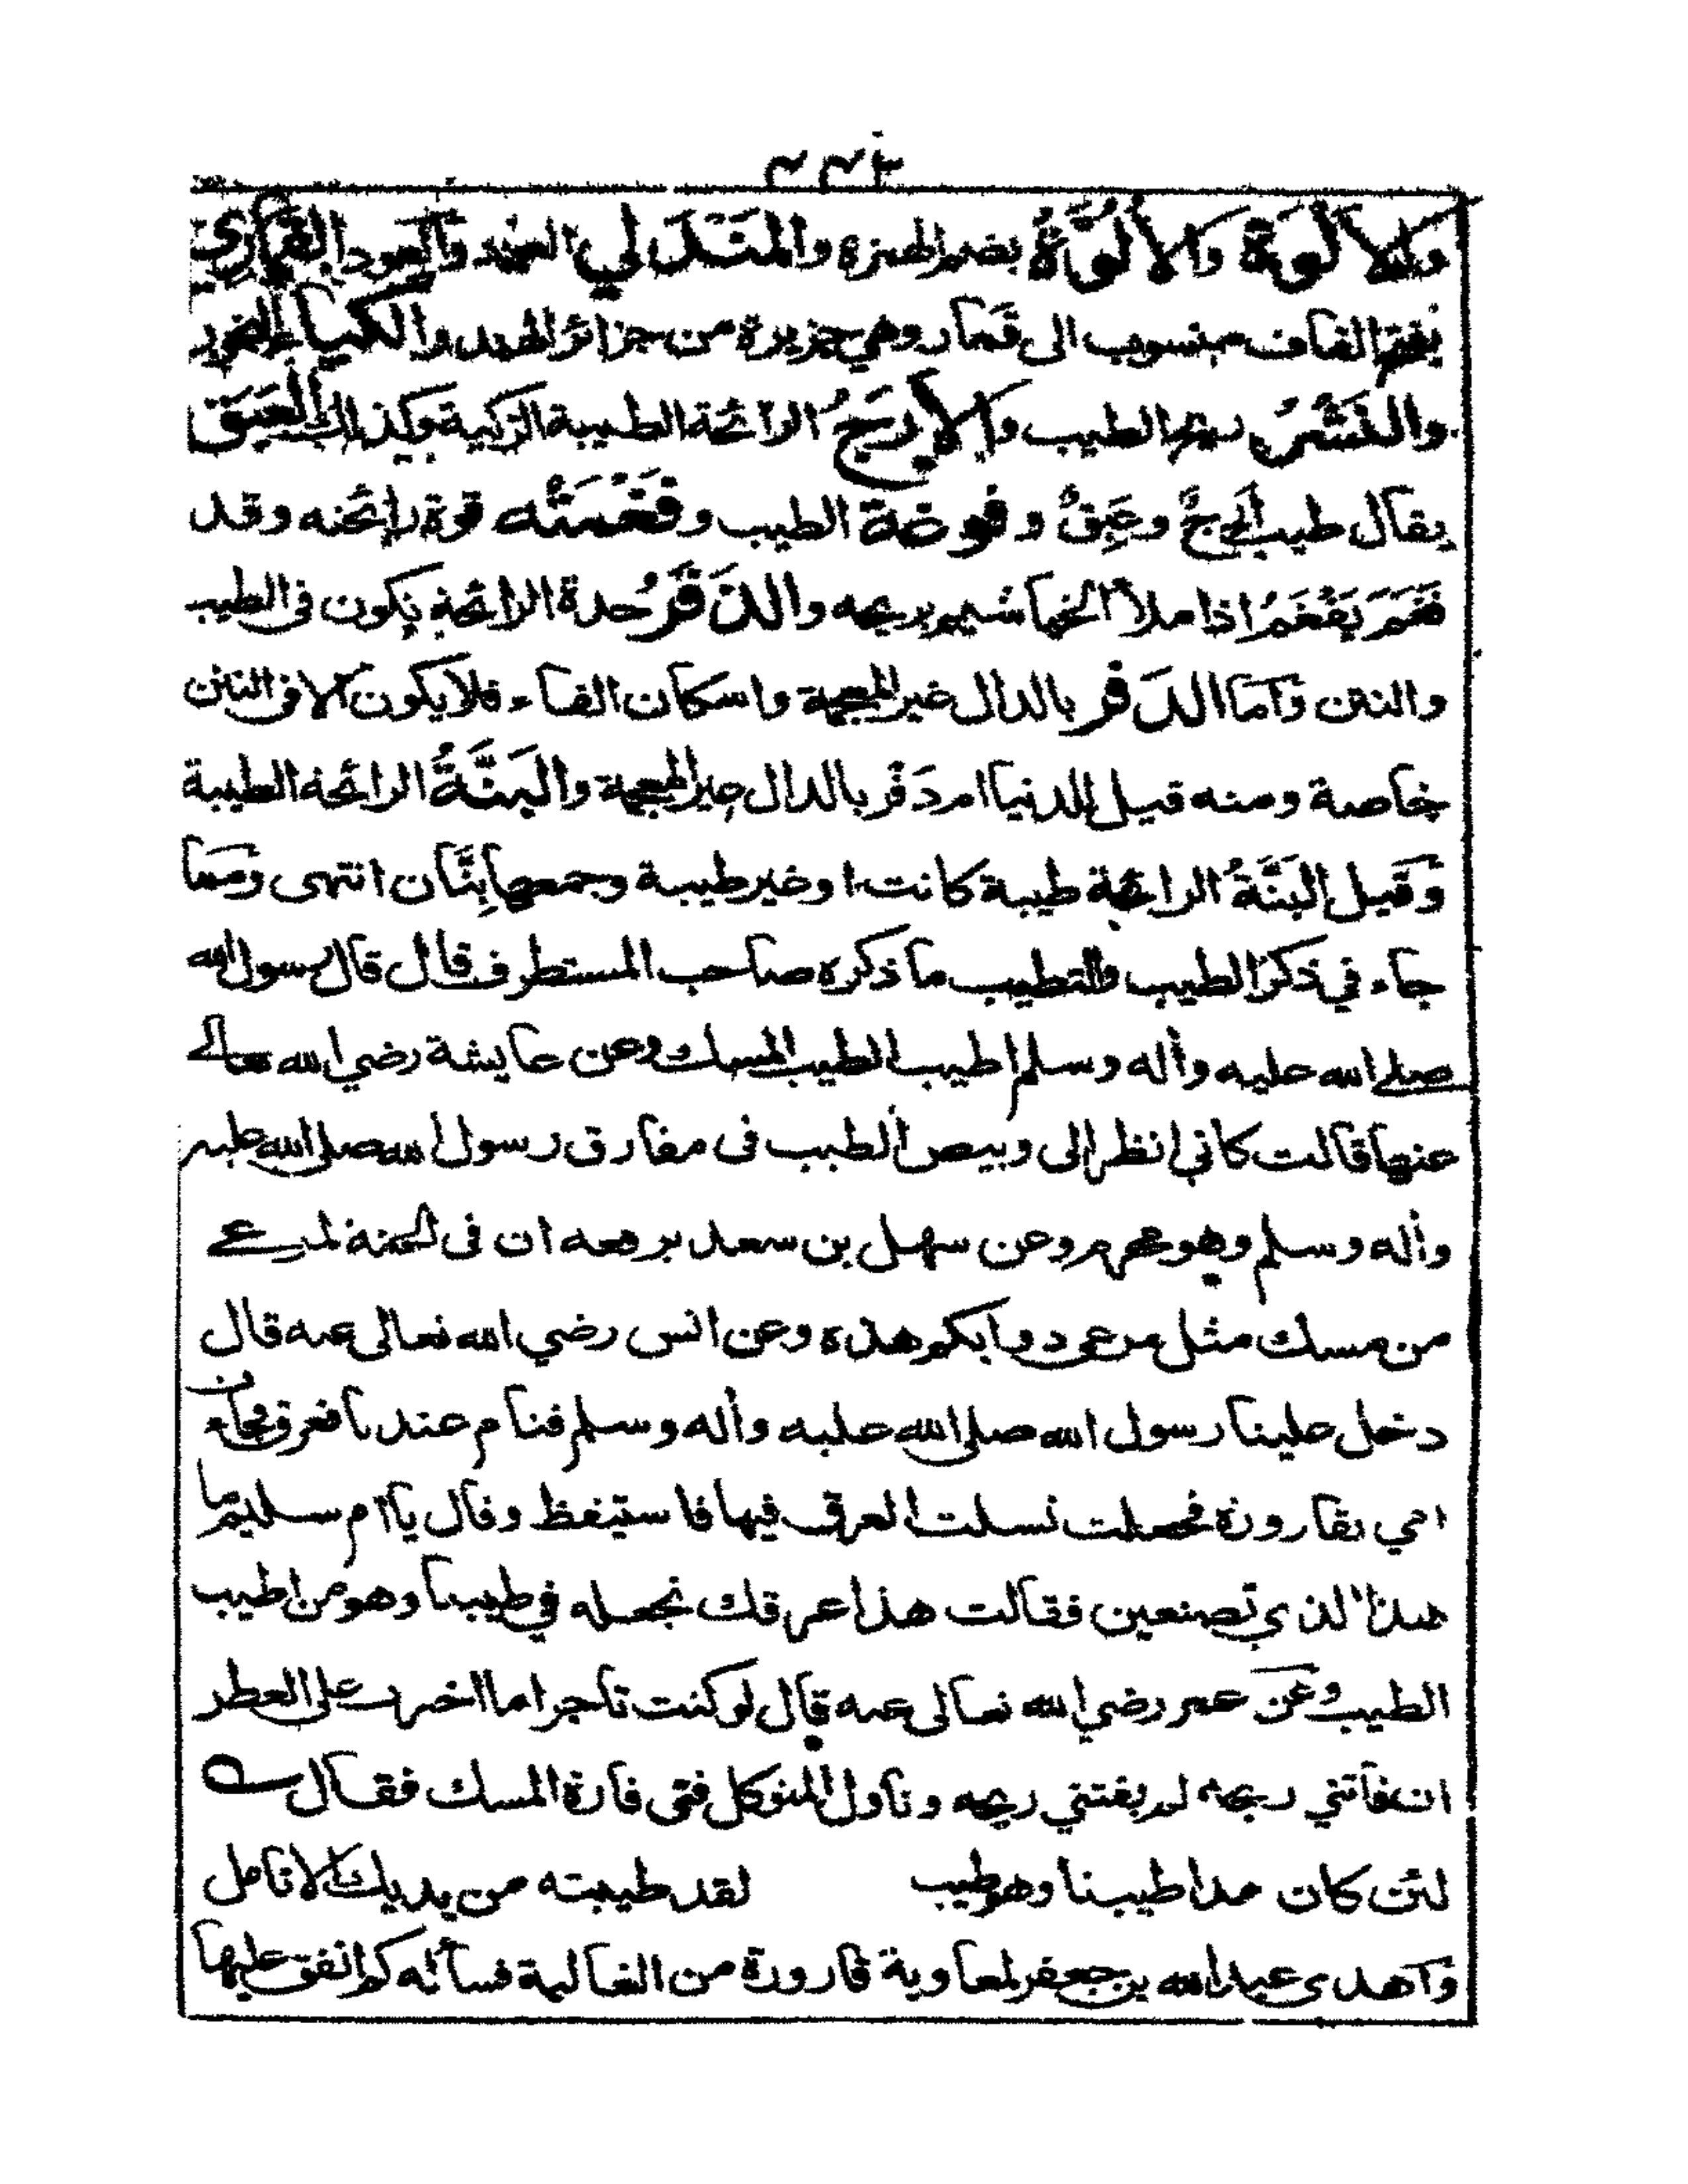 ٢٢٤
والألوة والأُلُوَّةُ بضم الهمزة والمَنْدَلي العود والعود القَماري
بفتح القاف منسوب الى قَمار وهي جزيرة من جزائر الهند والكباء البخور
والنَشْرُ ريح الطيب والأرَيَجُ الرائحة الطيبة الزكية وكذلك العَبَق
يقال طيب أَرِجٌ وعَبِقٌ و فوغة الطيب وفَغْمَتُه قوة رائحته وقد
فَغَمَ يَفْغَمُ اذا ملأ الخياشيم بريحه والذَفَرُ حدة الرائحة يكون فى الطيب
والنتن وَاَمّا الدَفر بالدال غير المعجمة واسكان الفاء فلا يكون الا فى النتن
خاصة ومنه قيل للدنيا ام دَفْر بالدال غير المعجمة والبَنَّةُ الرائحة الطيبة
وَقيل البَنَّةُ الرائحة طيبة كانت او غير طيبة وجمعها بِنَان انتهى ومَما
جاء في ذكر الطيب والتطيب ما ذكره صاحب المستطرف قال قال رسول الله
صلى الله عليه وأله وسلم اطيب الطيب المسك وعن عايشة رضي الله تعالى
عنها قالت كاني انظر الى وبيص الطيب فى مفارق رسول الله صلى الله عليه
وأله وسلم وهو محرم وعن سهل بن سعد يرفعه ان فى الجنة لمرعى
من مسك مثل مرعى دوابكم هذه وعن انس رضي الله تعالى عنه قال
دخل علينا رسول الله صلى الله عليه وأله وسلم فنام عندنا فعرق فجاءت
امي بقارورة فجعلت تسلت العرق فيها فاستيقظ وقال يا أم سليم ما
هذا الذي تصنعين فقالت هذا عرقك نجعله في طيبنا وهو من اطيب
الطيب وعَن عمر رضي الله تعالى عنه قال لو كنت تاجرا ما اخترت على العطر
ان فاتني ربحه لم يفتني ريحه وناول المتوكل فتى فارة المسك فقال
لئن كان هذا طيبنا وهو طيب لقد طيبته من يديك الانامل
وَاهدى عبد الله بن جعفر لمعاوية قارورة من الغالية فسأله كم انفق عليها